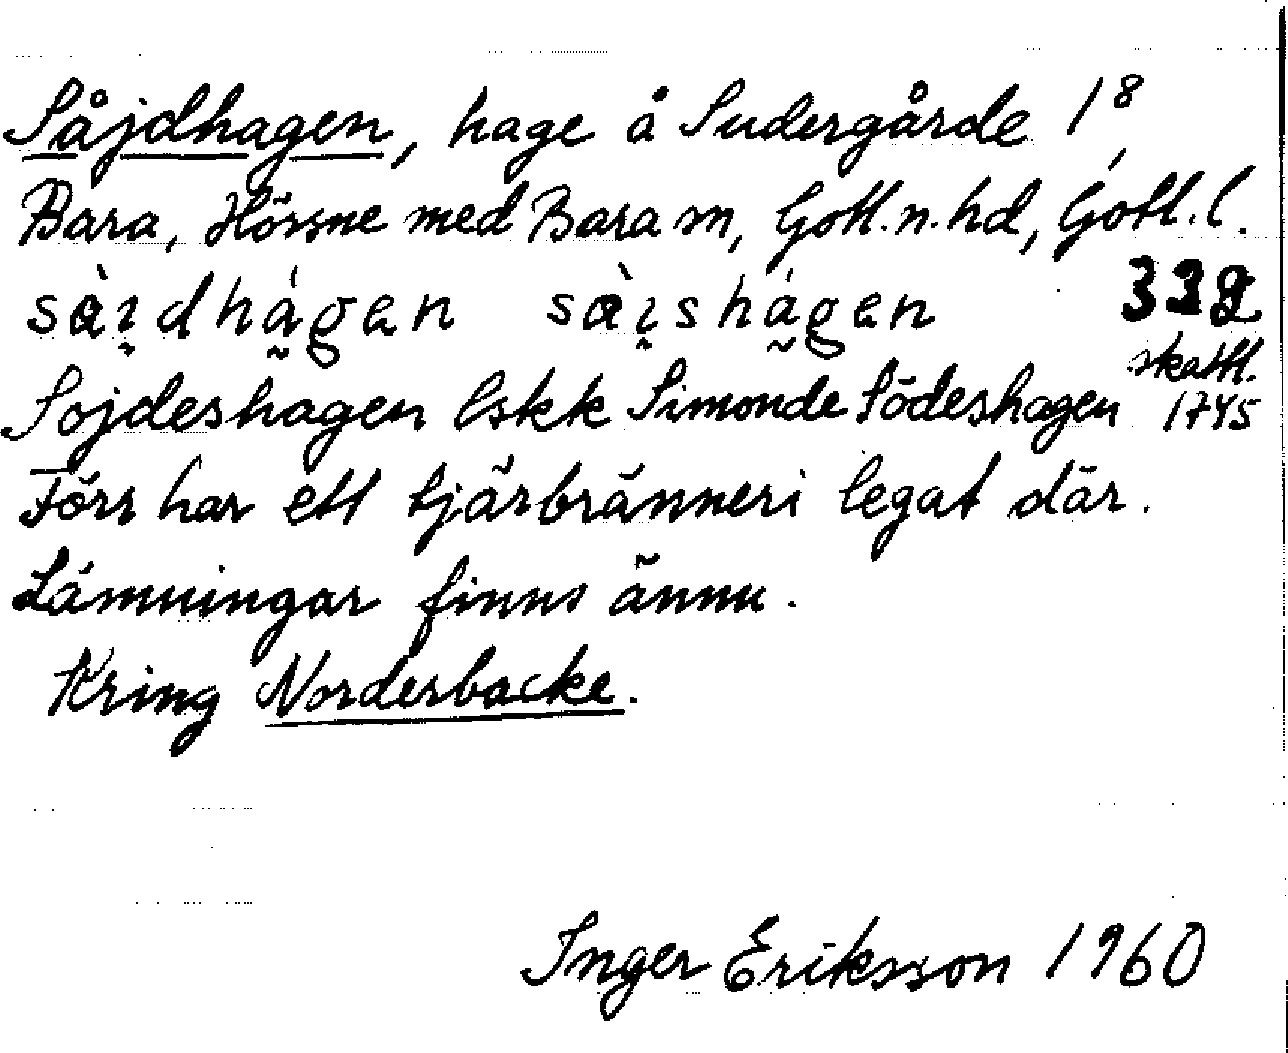 Såjdhagen, hage å Sudergårde 1⁸,
Bara, Hörsne med Bara sn, Gotl.n.hd, Gotl.l.
332
Sojdeshagen lskk Simonde Södeshagen skattl. 1745
Förr har ett tjärbränneri legat där.
Lämningar finns ännu.
Kring Norderbacke.
Inger Eriksson 1960